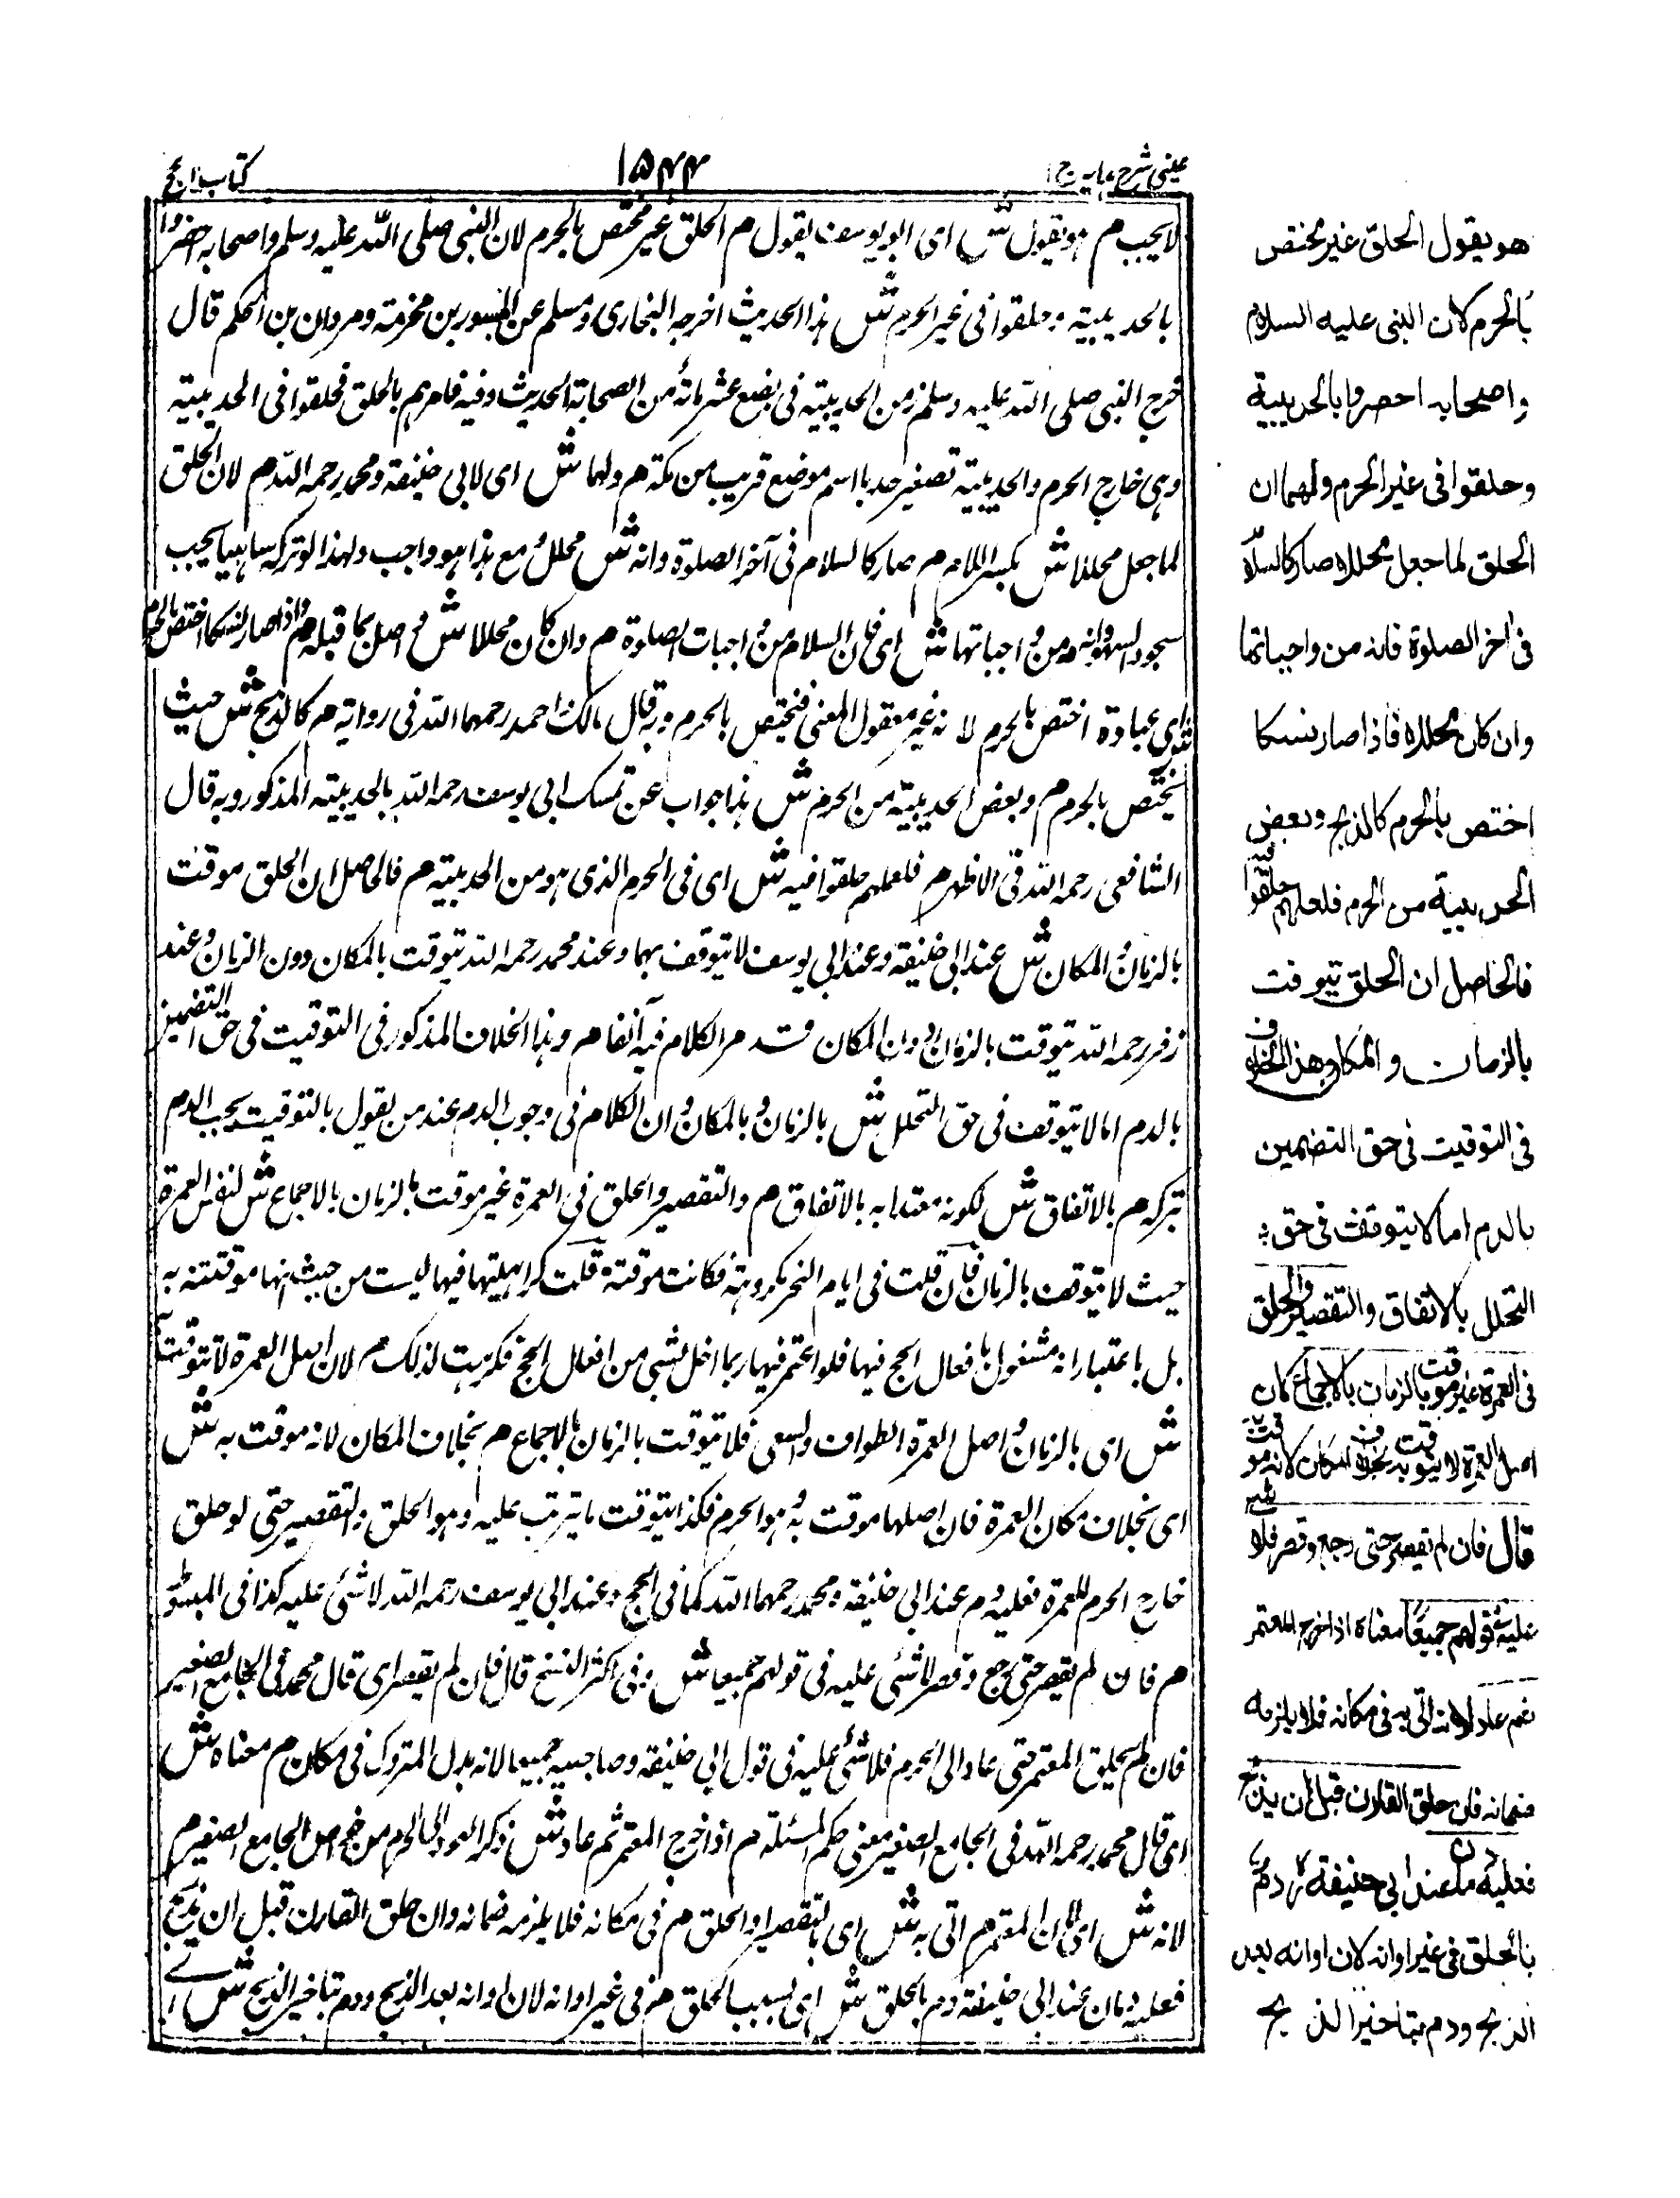 عینی شرح ہدایہ ج ۱
۱۵۴۴
کتاب الحج
لا یجب م ہو یقول ش ای ابو یوسف یقول م الحلق غیر مختص بالحرم لان النبی صلی اللہ علیہ وسلم واصحابہ احصروا
بالحدیبیتہ وحلقوا فی غیر الحرم ش ہذا الحدیث اخرجہ البخاری ومسلم عن المسور بن مخرمتہ ومروان بن الحکم قال
خرج النبی صلی اللہ علیہ وسلم زمن الحدیبیتہ فی بضع عشر مائۃ من الصحابۃ الحدیث وفیہ فامرہم بالحلق فحلقوا فی الحدیبیتہ
وہی خارج الحرم والحدیبیتہ تصغیر حدبا اسم موضع قریب من مکۃ م ولہما ش ای لابی حنیفۃ ومحمد رحمہ اللہ م لان الحلق
لما جعل محللا ش بکسر اللام م صار کالسلام فی آخر الصلوۃ وانہ ش محلل مع ہذا ہو واجب ولہذا لو ترکہ ساہیا یجب
سجود السہو فانہ م من واجباتہا ش ای فان السلام من واجبات الصلوۃ م وان کان محللا ش حاصل بما قبلہ م فاذا صار نسکا اختص بالحرم
ش ای عبادۃ اختص بالحرم لانہ غیر معقول المعنی فیختص بالحرم وبہ قال مالک احمد رحمہما اللہ فی روایۃ م کالذبح ش حیث
یختص بالحرم م وبعض الحدیبیتہ من الحرم ش ہذا جواب عن تمسک ابی یوسف رحمہ اللہ بالحدیبیتہ المذکور وبہ قال
الشافعی رحمہ اللہ فی الاظہر م فلعلہم حلقوا فیہ ش ای فی الحرم الذی ہو من الحدیبیتہ م فالحاصل ان الحلق موقت
بالزمان والمکان ش عند ابی حنیفۃ وعند ابی یوسف لا یتوقف بہما وعند محمد رحمہ اللہ یتوقت بالمکان دون الزمان وعند
زفر رحمہ اللہ یتوقت بالزمان دون المکان وقد مر الکلام فیہ آنفا م وہذا الخلاف المذکور فی التوقیت فی حق التضمین
بالدم اما لا یتوقف فی حق التحلل ش بالزمان وبالمکان وان الکلام فی وجوب الدم عند من یقول بالتوقیت یجب الدم
بترکہ م بالاتفاق ش لکونہ معتدا بہ بالاتفاق م والتقصیر والحلق فی العمرۃ غیر موقت بالزمان بالاجماع ش لنفس العمرۃ
حیث لا یتوقف بالزمان فان قلت فی ایام النحر مکروہۃ فکانت موقتۃ قلت کراہیتہا فیہا لیست من حیث انہا موقتتہ بہ
بل باعتبار انہ مشغول بافعال الحج فیہا فلو اعتمر فیہا ربما اخل بشیئ من افعال الحج فکرہت لذلک م لان اصل العمرۃ لا یتوقت بہ
ش ای بالزمان واصل العمرۃ الطواف والسعی فلا یتوقت بالزمان بالاجماع م بخلاف المکان لانہ موقت بہ ش
ای بخلاف مکان العمرۃ فان اصلہا موقت بہ وہو الحرم فکذا یتوقت ما یترتب علیہ وہو الحلق والتقصیر حتی لو حلق
خارج الحرم للعمرۃ فعلیہ دم عند ابی حنیفۃ ومحمد رحمہما اللہ کما فی الحج وعند ابی یوسف رحمہ اللہ لا شئی علیہ کذا فی المبسوط
م فان لم یقصر حتی رجع وقصر لا شئی علیہ فی قولہم جمیعا ش وفی اکثر النسخ قال فان لم یقصر ای قال محمد فی الجامع الصغیر
فان لم یحلق المعتمر حتی عاد الی الحرم فلا شئی علیہ فی قول ابی حنیفۃ وصاحبیہ جمیعا لانہ بدل المتروک فی مکان م معناہ ش
ای قال محمد رحمہ اللہ فی الجامع الصغیر معنی حکم المسئلۃ م اذا خرج المعتمر ثم عاد ش ذکر العود الی الحرم من خواص الجامع الصغیر م
لانہ ش ای لان المعتمر م اتی بہ ش ای بالتقصیر او الحلق م فی مکانہ فلا یلزمہ ضمانہ وان حلق القارن قبل ان یذبح
فعلیہ دمان عند ابی حنیفۃ دم بالحلق ش ای بسبب الحلق م فی غیر اوانہ لان اوانہ بعد الذبح ودم بتاخیر الذبح ش اے
ھو یقول الحلق غیر مختص
بالحرم لان النبی علیہ السلام
واصحابہ احصروا بالحدیبیۃ
وحلقوا فی غیر الحرم ولھما ان
الحلق لما جعل محللا صار کالسلام
فی اخر الصلوۃ فانہ من واجباتھا
وان کان محللا فاذا صار نسکا
اختص بالحرم کالذبح وبعض
الحدیبیۃ من الحرم فلعلھم حلقوا فیہ
فالحاصل ان الحلق یتوقت
بالزمان والمکان وھذا الخلاف
فی التوقیت فی حق التضمین
بالدم اما لا یتوقف فی حق
التحلل بالاتفاق والتقصیر والحلق
فی العمرۃ غیر موقت بالزمان بالاجماع لان
اصل العمرۃ لا یتوقت بہ بخلاف المکان لانہ موقت
قال فان لم یقصر حتی رجع وقصر فلا شئ
علیہ فی قولھم جمیعا معناہ اذا خرج المعتمر
ثم عاد لانہ اتی بہ فی مکانہ فلا یلزمہ
ضمانہ فان حلق القارن قبل ان یذبح
فعلیہ دمان عند ابی حنیفۃ رح دم
بالحلق فی غیر اوانہ لان اوانہ بعد
الذبح ودم بتاخیر الذبح